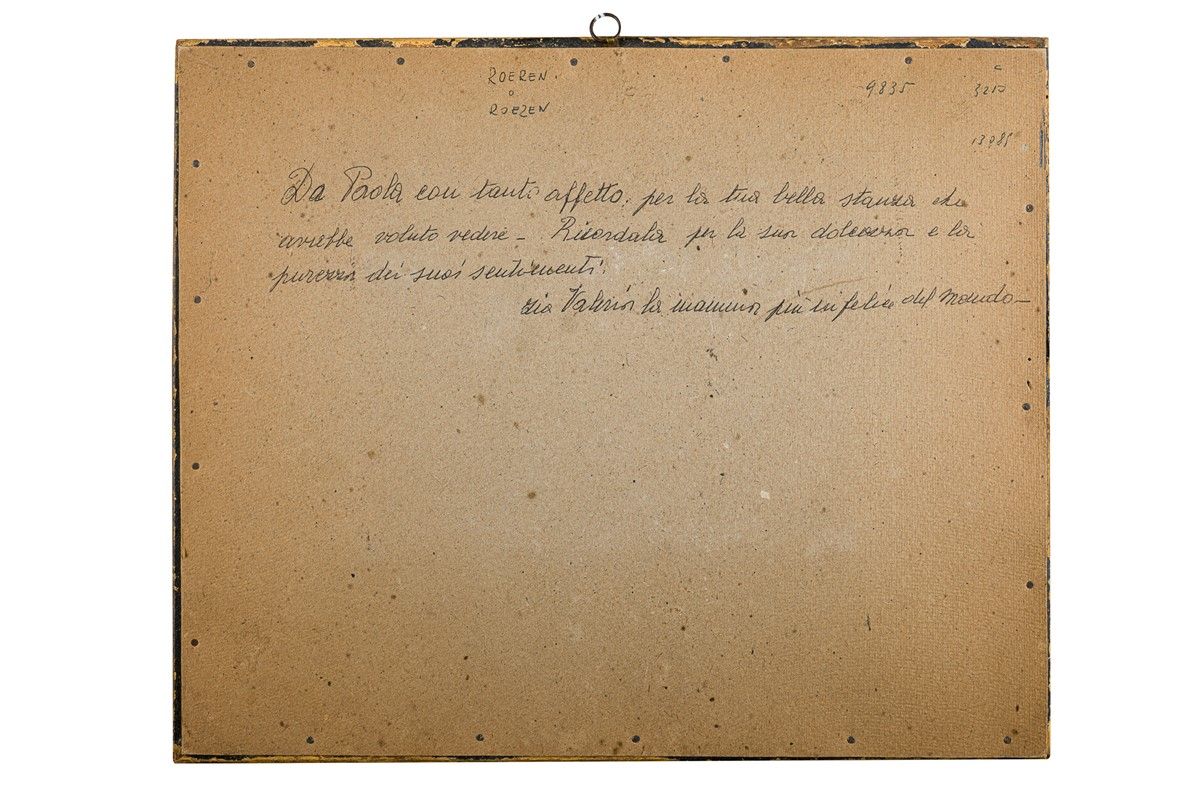 ROEREN
o
ROEZEN
9835
C
13985
Da Paola con tanto affetto, per la tua bella stanza che
avrebbe voluto vedere - Ricordala per la sua dolcezza e la
purezza dei suoi sentimenti.
zia Valeria la mamma più infelice del mondo -